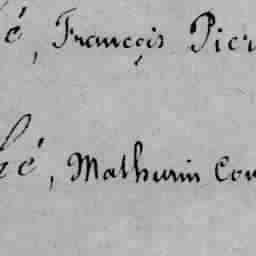 é, François Pier
hé, Mathurin Cou